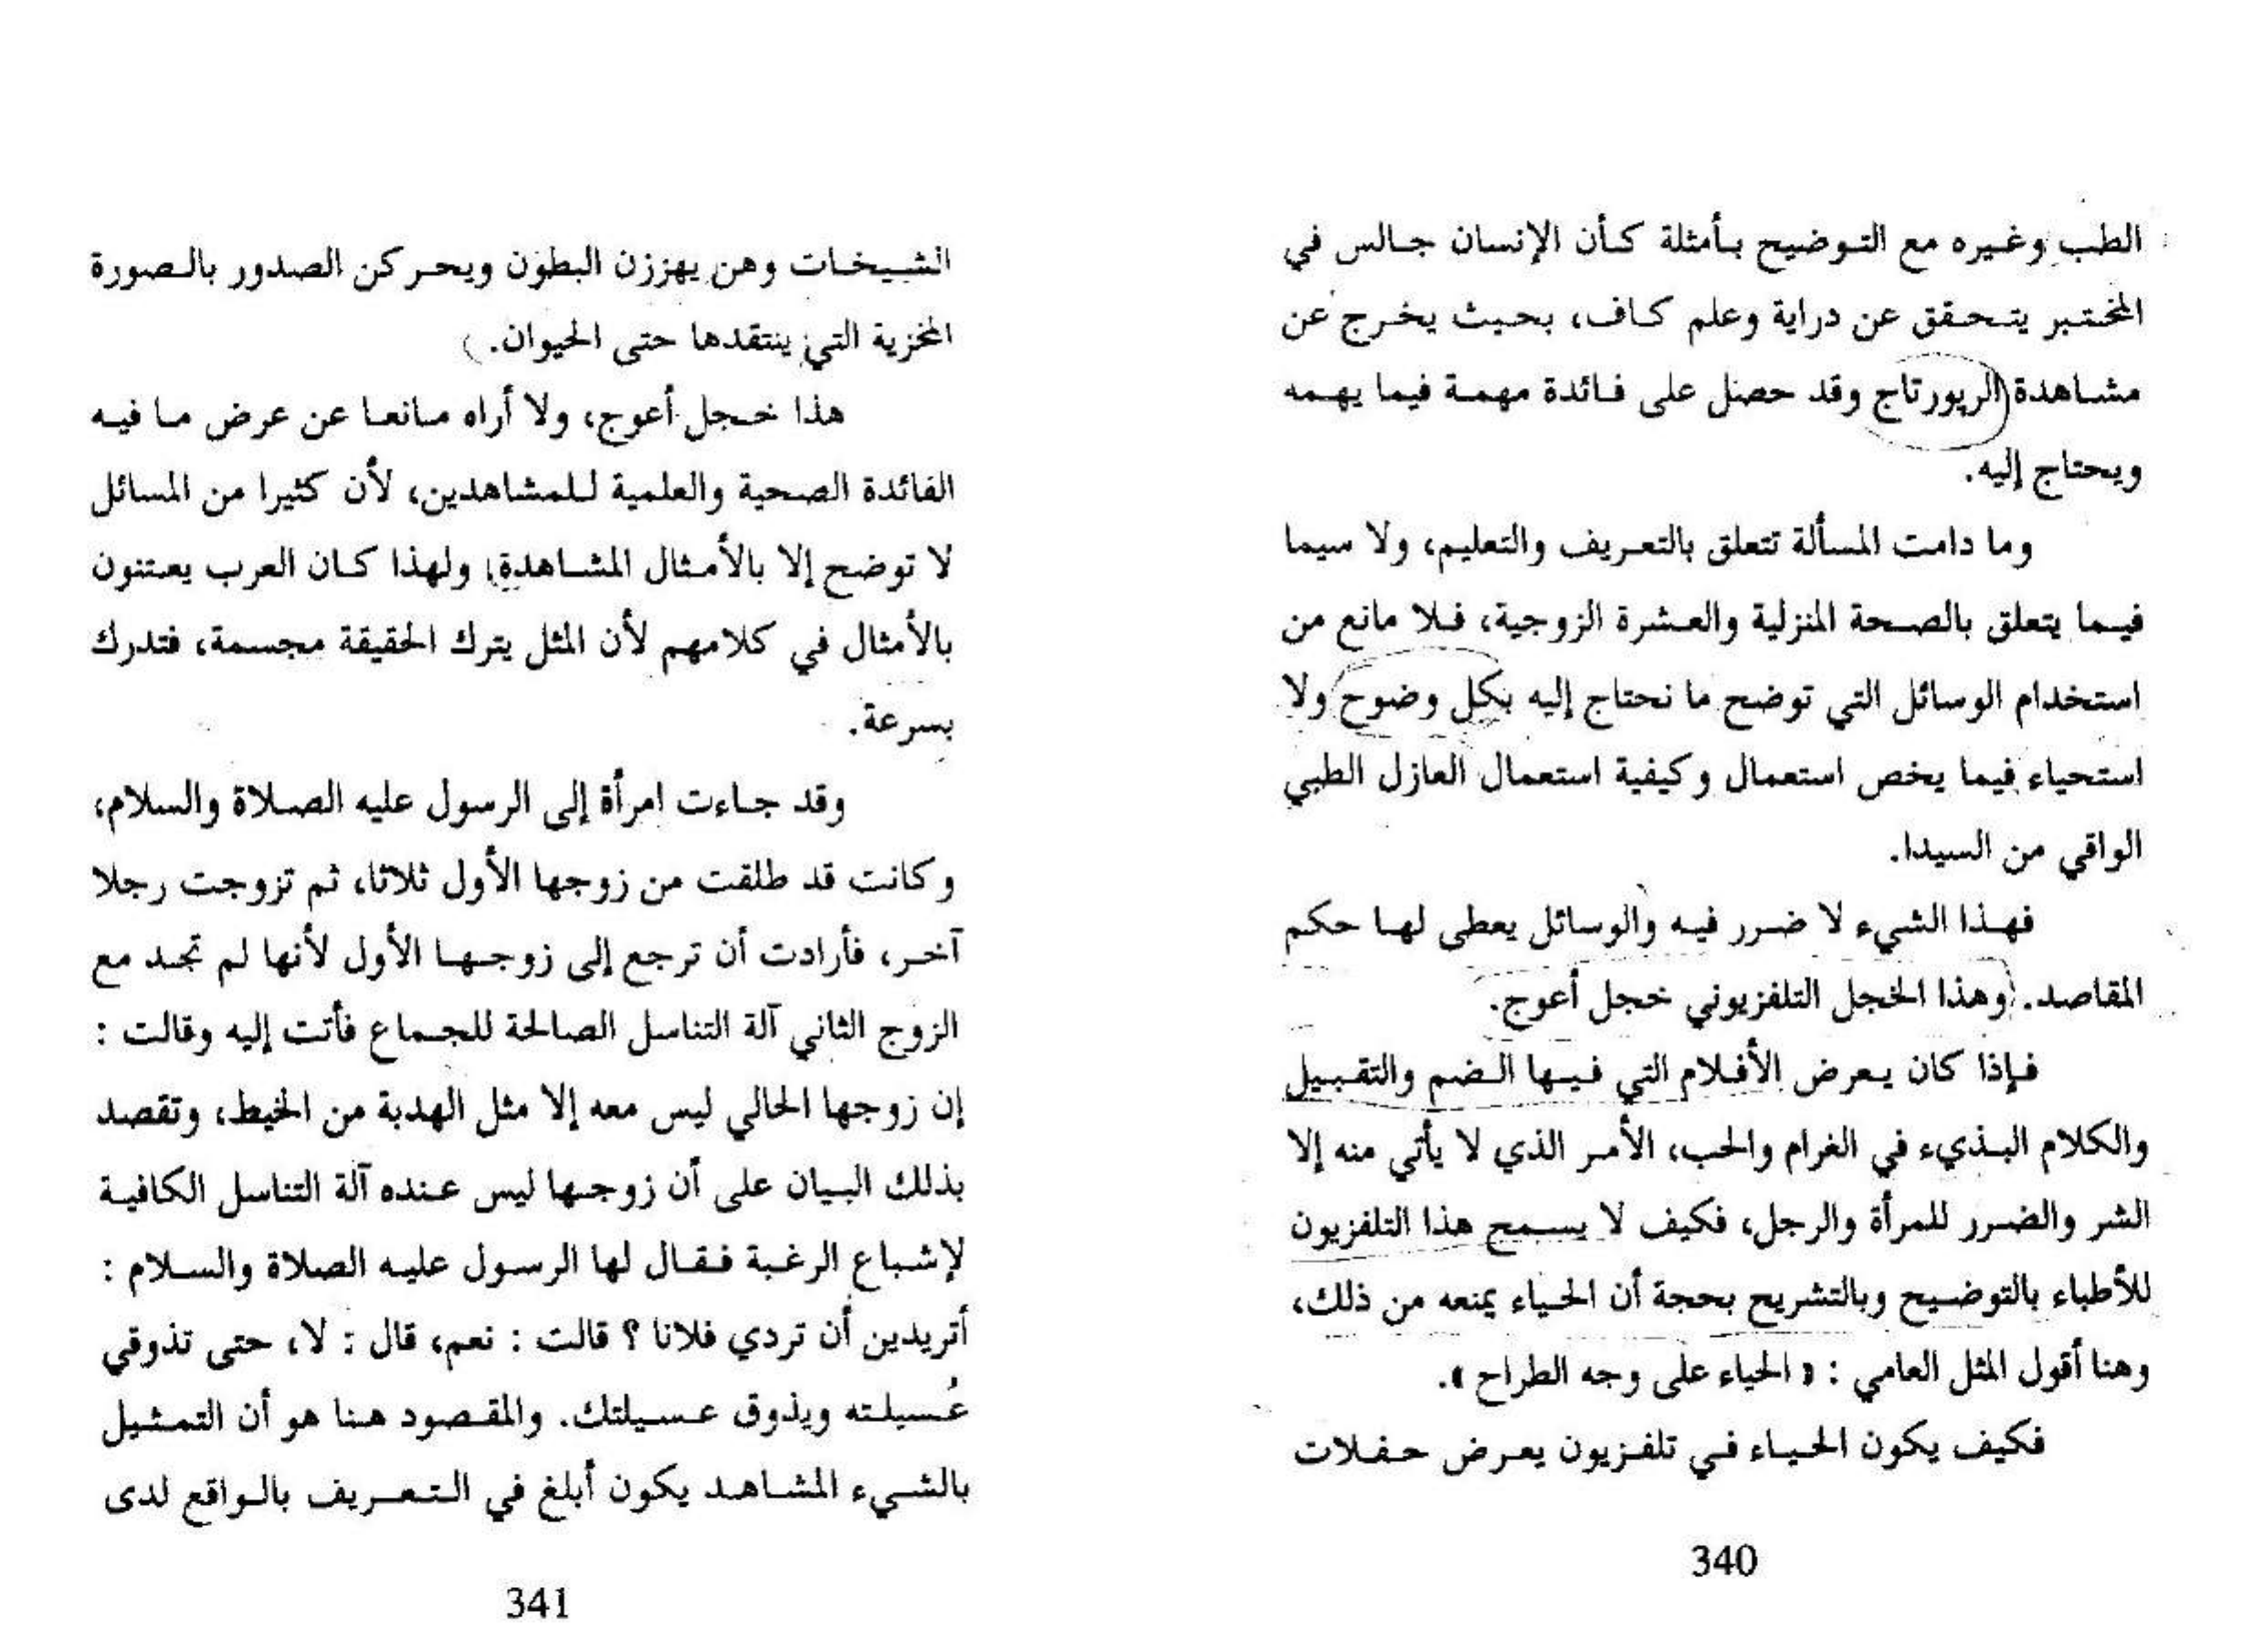 الطب وغيره مع التوضيح بأمثلة كأن الإنسان جالس في
المختبر يتحقق عن دراية وعلم كاف، بحيث يخرج عن
مشاهدة الريورتاج وقد حصل على فائدة مهمة فيما يهمه
ويحتاج إليه.
وما دامت المسألة تتعلق بالتعريف والتعليم، ولا سيما
فيما يتعلق بالصحة المنزلية والعشرة الزوجية، فلا مانع من
استخدام الوسائل التي توضح ما نحتاج إليه بكل وضوح ولا
استحياء فيما يخص استعمال وكيفية استعمال العازل الطبي
الواقي من السيدا.
فهذا الشيء لا ضرر فيه والوسائل يعطى لها حكم
المقاصد. وهذا الخجل التلفزيوني خجل أعوج.
فإذا كان يعرض الأفلام التي فيها الضم والتقبيل
والكلام البذيء في الغرام والحب، الأمر الذي لا يأتي منه إلا
الشر والضرر للمرأة والرجل، فكيف لا يسمح هذا التلفزيون
للأطباء بالتوضيح وبالتشريح بحجة أن الحياء يمنعه من ذلك،
وهنا أقول المثل العامي : « الحياء على وجه الطراح ».
فكيف يكون الحياء في تلفزيون يعرض حفلات
340
الشيخات وهن يهززن البطون ويحركن الصدور بالصورة
المخزية التي ينتقدها حتى الحيوان.
هذا خجل أعوج، ولا أراه مانعا عن عرض ما فيه
الفائدة الصحية والعلمية للمشاهدين، لأن كثيرا من المسائل
لا توضح إلا بالأمثال المشاهدة، ولهذا كان العرب يعتنون
بالأمثال في كلامهم لأن المثل يترك الحقيقة مجسمة، فتدرك
بسرعة.
وقد جاءت امرأة إلى الرسول عليه الصلاة والسلام،
وكانت قد طلقت من زوجها الأول ثلاثا، ثم تزوجت رجلا
آخر، فأرادت أن ترجع إلى زوجها الأول لأنها لم تجد مع
الزوج الثاني آلة التناسل الصالحة للجماع فأتت إليه وقالت :
إن زوجها الحالي ليس معه إلا مثل الهدبة من الخيط، وتقصد
بذلك البيان على أن زوجها ليس عنده آلة التناسل الكافية
لإشباع الرغبة فقال لها الرسول عليه الصلاة والسلام :
أتريدين أن تردي فلانا ؟ قالت : نعم، قال : لا، حتى تذوقي
عُسيلته ويذوق عسيلتك. والمقصود هنا هو أن التمثيل
بالشيء المشاهد يكون أبلغ في التعريف بالواقع لدى
341